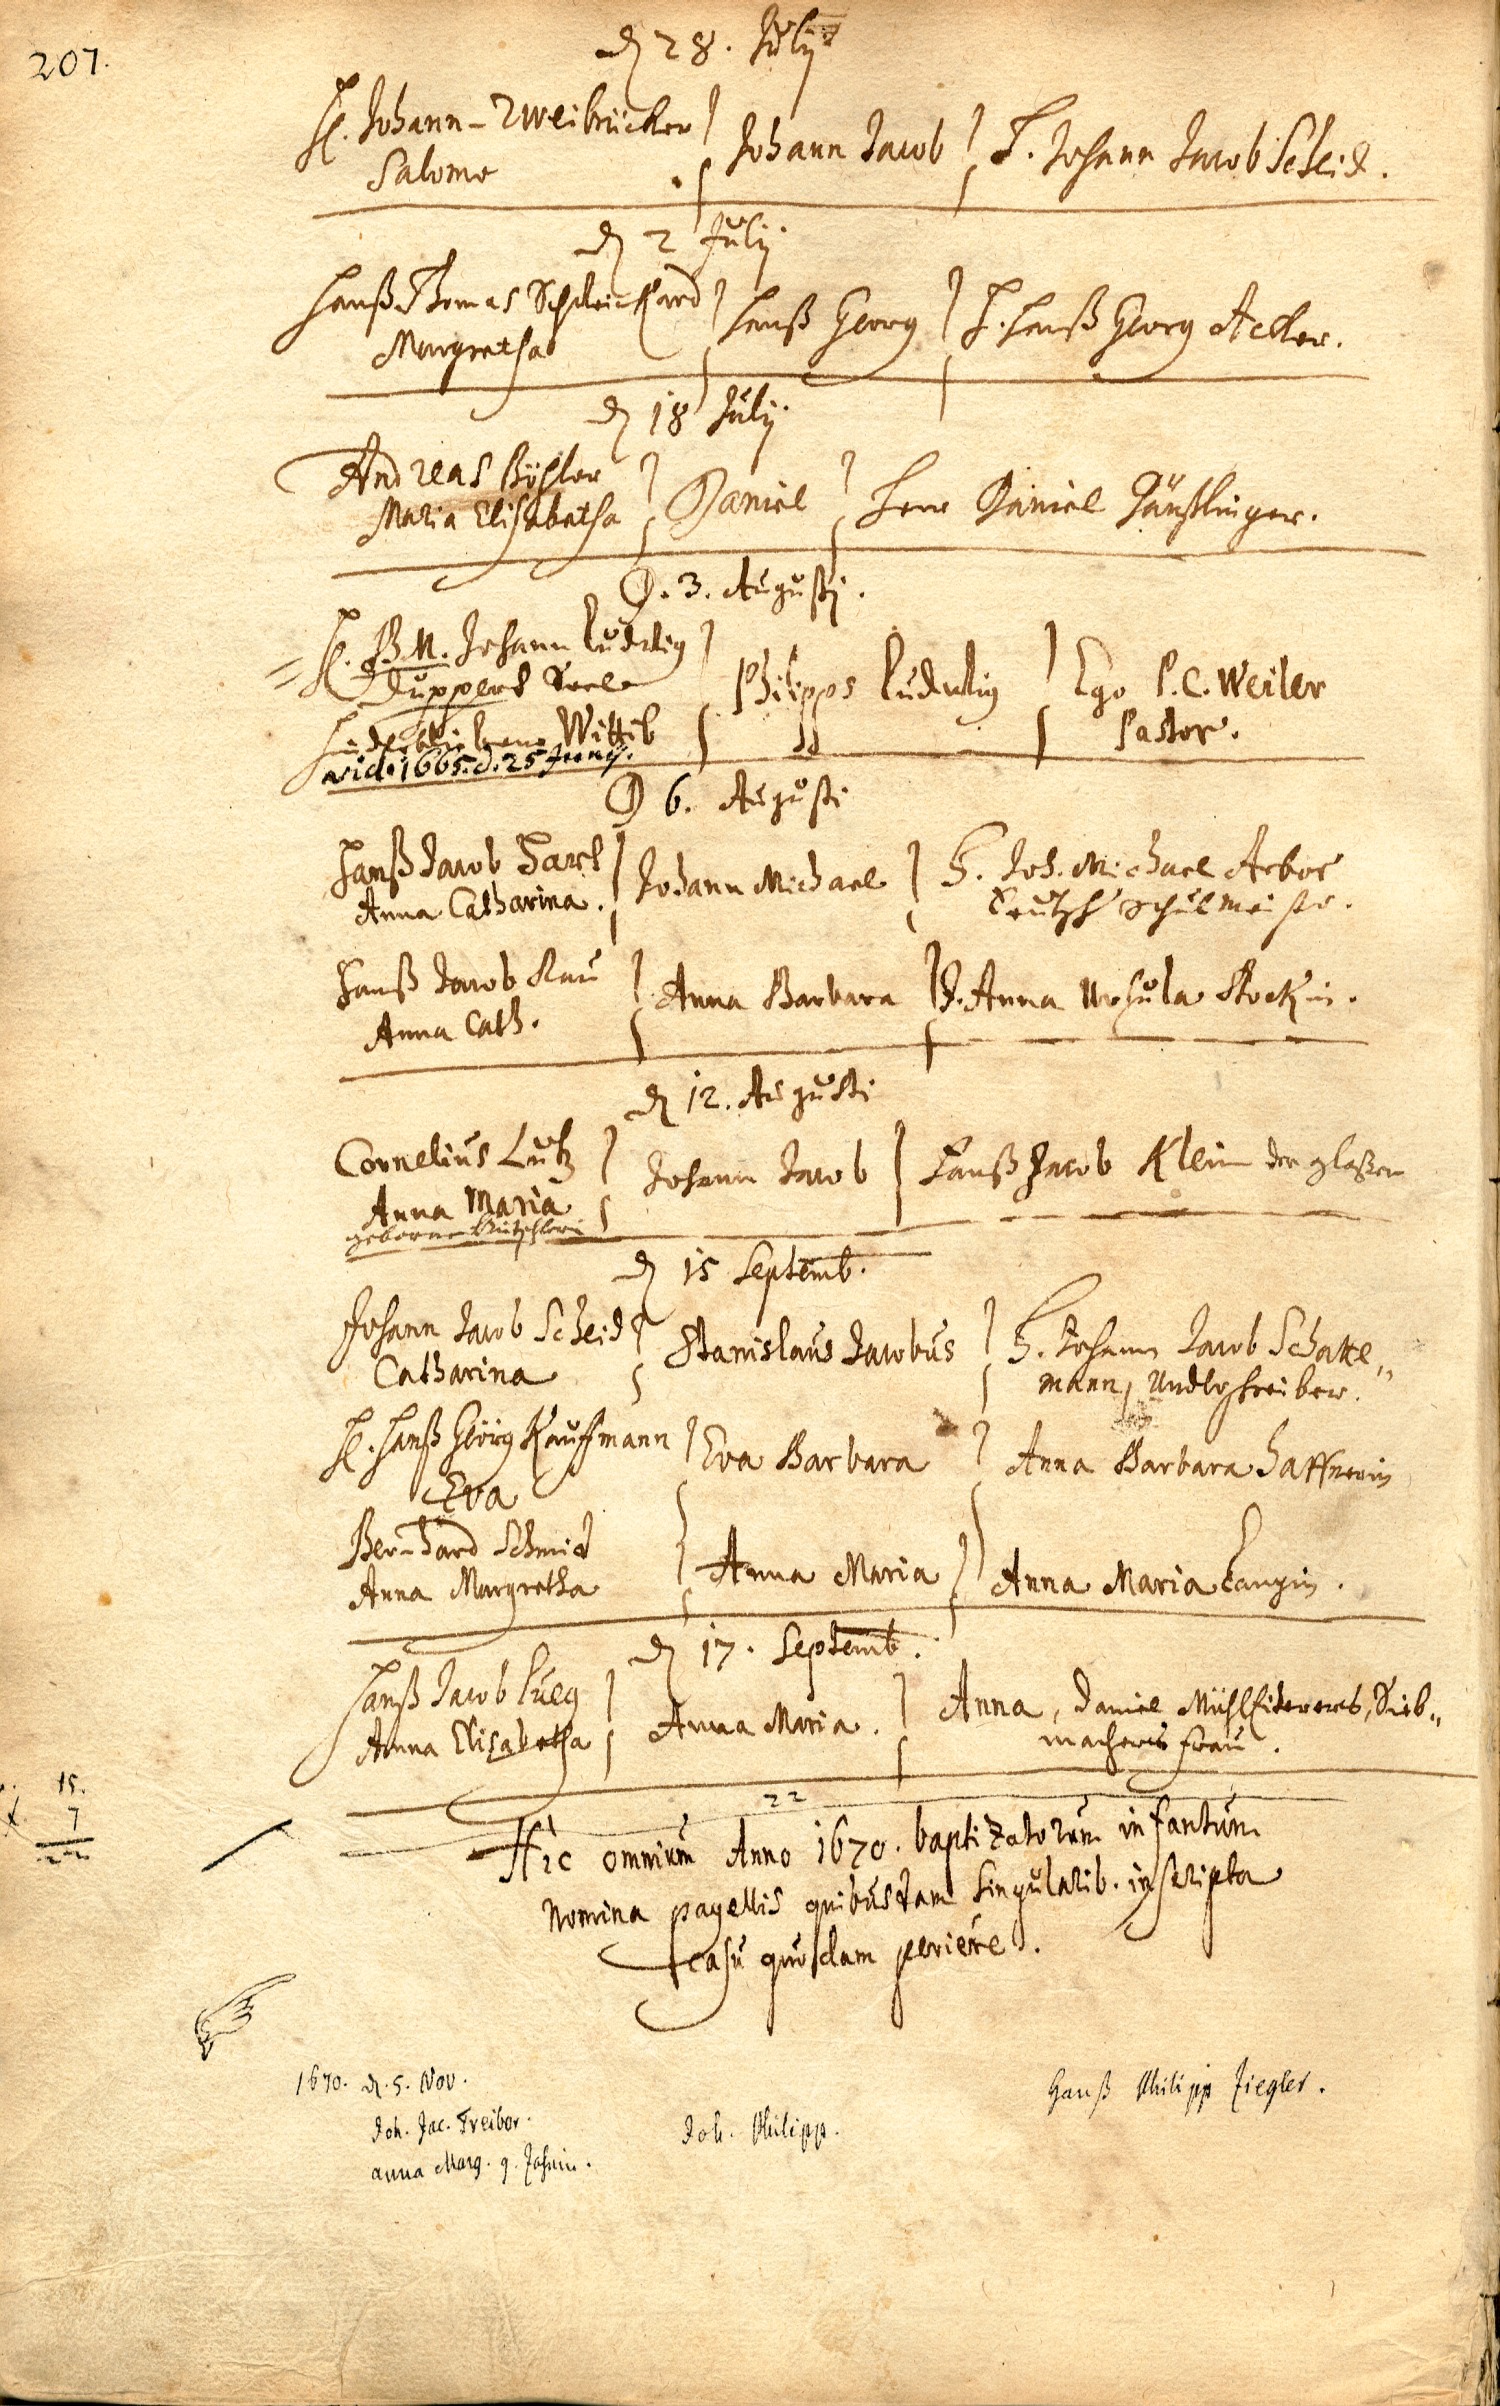 207.
d 28. Julij
H. Johann Zweibrücker
Salome
Johann Jacob
H. Johann Jacob Scheid.
d 2 Julij
Hanß Thomas Schleickard
Margretha
Hanß Georg
H. Hanß Georg Acker.
d 18 Julij
Andreas Bÿhler
Maria Elisabetha
Daniel
Herr Daniel
D. 3. Augusti.
H. B.M. Johann Ludwig
Dupperts Seel.
Hinderblibene Wittib
vid. 1665. d. 25 Junij.
Philipps Ludwig
Ego P.C. Weiler
Pastor.
D 6. Augusti
Hanß Jacob Harl
Anna Catharina.
Johann Michael
H. Joh. Michael Arbor
Teutsch Schulmeistr.
Hanß Jacob Rau
Anna Cath.
Anna Barbara
J. Anna Ursula Stockin.
d 12. Augusti
Cornelius Lutz
Anna Maria
geborne
Johann Jacob
Hanß Jacob Klein der glaßer
d 15 Septemb.
Johann Jacob Scheid
Catharina
Stanislaus Jacobus
H. Johann Jacob Schatte„
mann,
H. Hanß Geörg Kauffmann
Eva
Eva Barbara
Anna Barbara Haffnerin
Bernhard Schmid
Anna Margretha
Anna Maria
Anna Maria Langin.
d 17. Septemb.
Hanß Jacob Lueg
Anna Elisabetha
Anna Maria.
Anna, Daniel Sieb„
machers frau.
15.
7
22
22
Hìc omnium Anno 1670. baptizatorum infantum
Nomina pagellis quibusdam singularib. inscripta
casu quodam periêre.
1670. d. 5. Nov.
Joh. Jac. Treiber.
Anna Marg. g. Jahnin.
Joh. Philipp.
Hanß Philipp Ziegler.